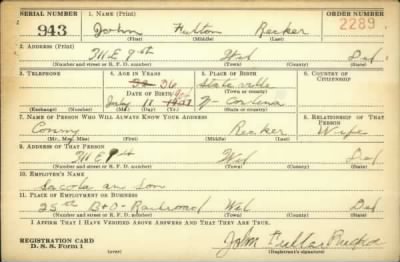 SERIAL NUMBER 1. NAME (Print) ORDER NUMBER
943 John Fulton Recker 2289
(First) (Middle) (Last)
2. ADDRESS (Print)
711 E 9 st Wil Del
(Number and street or R. F. D. number) (Town) (County) (State)
3. TELEPHONE 4. AGE IN YEARS 5. PLACE OF BIRTH 6. COUNTRY OF CITIZENSHIP
36 Statesville
DATE OF BIRTH (Town or county)
July 11 N- Carolina
(Exchange) (Number) (Mo.) (Day) (Yr.) (State or country)
7. NAME OF PERSON WHO WILL ALWAYS KNOW YOUR ADDRESS 8. RELATIONSHIP OF THAT PERSON
Recker Wife
(Mr., Mrs., Miss) (First) (Middle) (Last)
9. ADDRESS OF THAT PERSON
Wil Del
(Number and street or R. F. D. number) (Town) (County) (State)
10. EMPLOYER'S NAME
an Son
11. PLACE OF EMPLOYMENT OR BUSINESS
25th B+O- Railroad Wil Del
(Number and street or R. F. D. number) (Town) (County) (State)
I AFFIRM THAT I HAVE VERIFIED ABOVE ANSWERS AND THAT THEY ARE TRUE.
REGISTRATION CARD
D. S. S. Form 1 (over) John
(Registrant's signature)